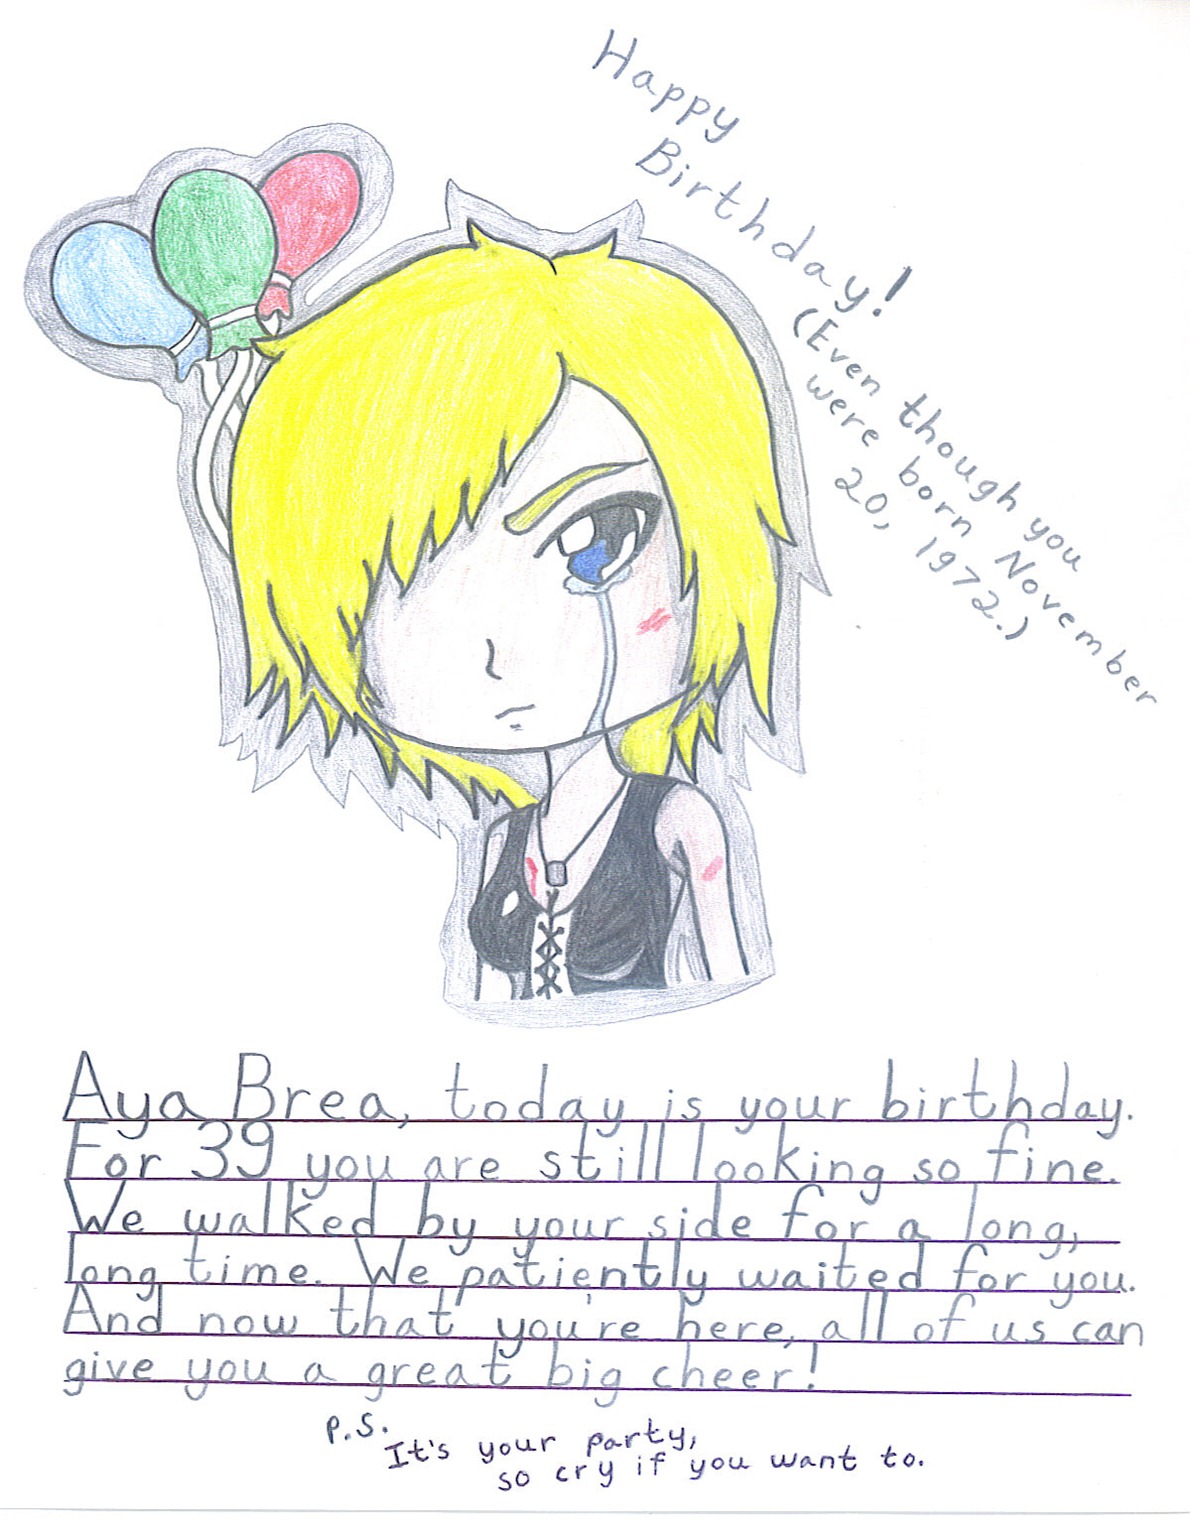 Happy
Birthday!
(Even though you
were born November
20, 1972.)
Aya Brea, today is your birthday.
For 39 you are still looking so fine.
We walked by your side for a long,
long time. We patiently waited for you.
And now that you're here, all of us can
give you a great big cheer!
P.S.
It's your party,
so cry if you want to.